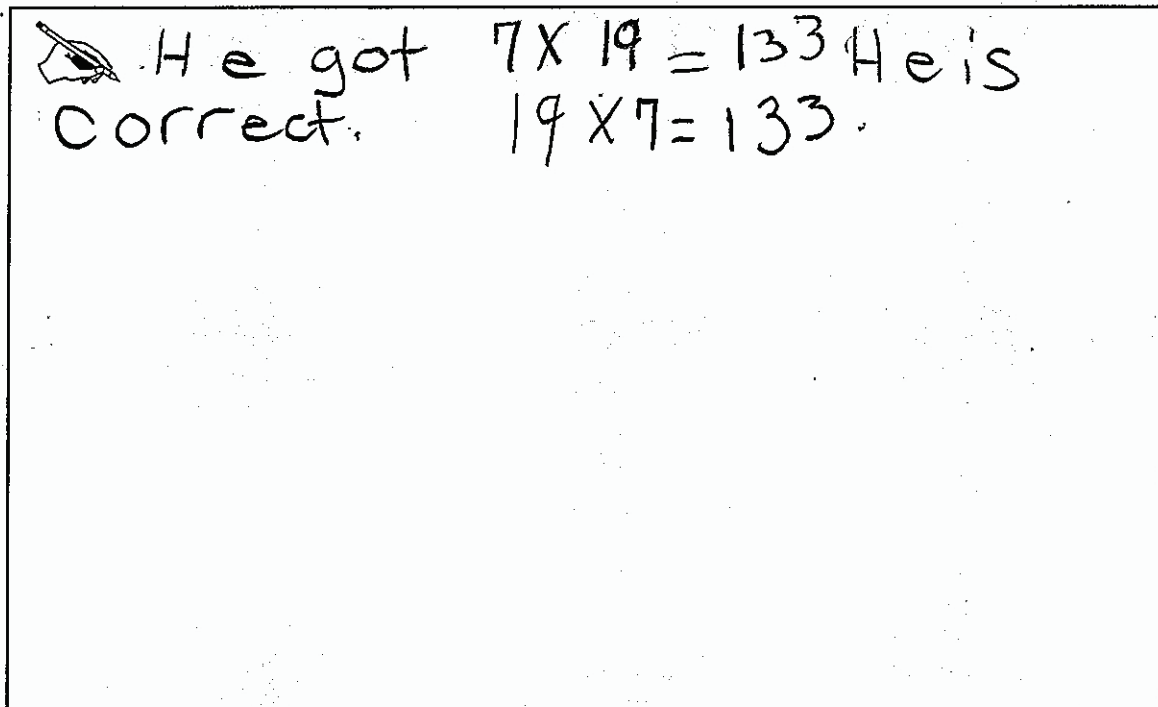 He got 7 X 19 = 133 He is
correct. 19 X 7 = 133.